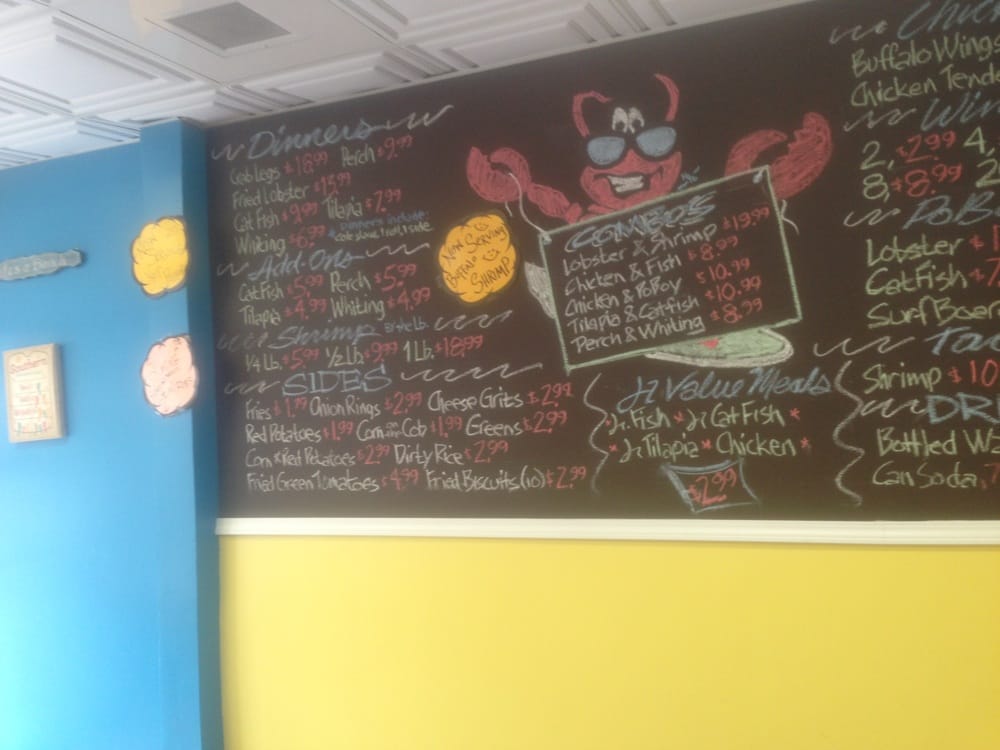 Dinners
Crab Legs $18.99 Perch $9.99
Fried Lobster $15.99
Cat Fish $9.99 Tilapia $7.99
Whiting $6.99 *Dinners include:
cole slaw, fruit, 1 side.
Add-Ons
CatFish $5.99 Perch $5.99
Tilapia $4.99 Whiting $4.99
Shrimp By the Lb.
1/4 Lb. $5.99 1/2 Lb $9.99 1 Lb. $18.99
SIDES
Fries $1.79 Onion Rings $2.99 Cheese Grits $2.99
Red Potatoes $1.99 Corn on the Cob $1.99 Greens $2.99
Corn & Red Potatoes $2.99 Dirty Rice $2.99
Fried Green Tomatoes $4.99 Fried Biscuits (10) $2.99
Now Serving
Buffalo
SHRIMP
COMBO'S
Lobster & Shrimp $19.99
Chicken & Fish $8.99
Chicken & PoBoy $10.99
Tilapia & Catfish $10.99
Perch & Whiting $8.99
Jr Value Meals
*Jr. Fish *Jr Cat Fish *
*Jr Tilapia * Chicken *
$2.99
Buffalo Wings
Chicken Tend
Win
2, $2.99 4,
8, $8.99 2
PoB
Lobster $1
CatFish $7
Surf Boar
Tac
Shrimp $10
DRI
Bottled Wa
Can Soda .7